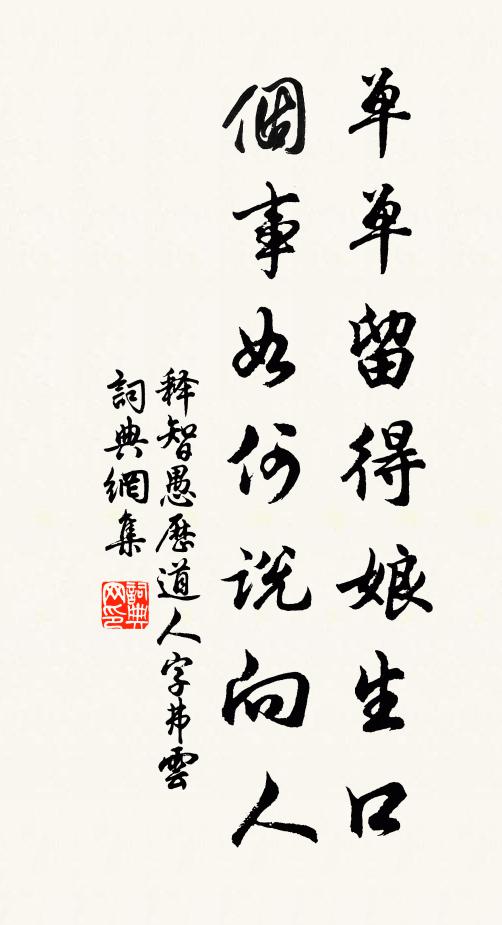 单单留得娘生口
個事如何説向人
释智愚歷道人字弗雲
詞典網集
詞典网印